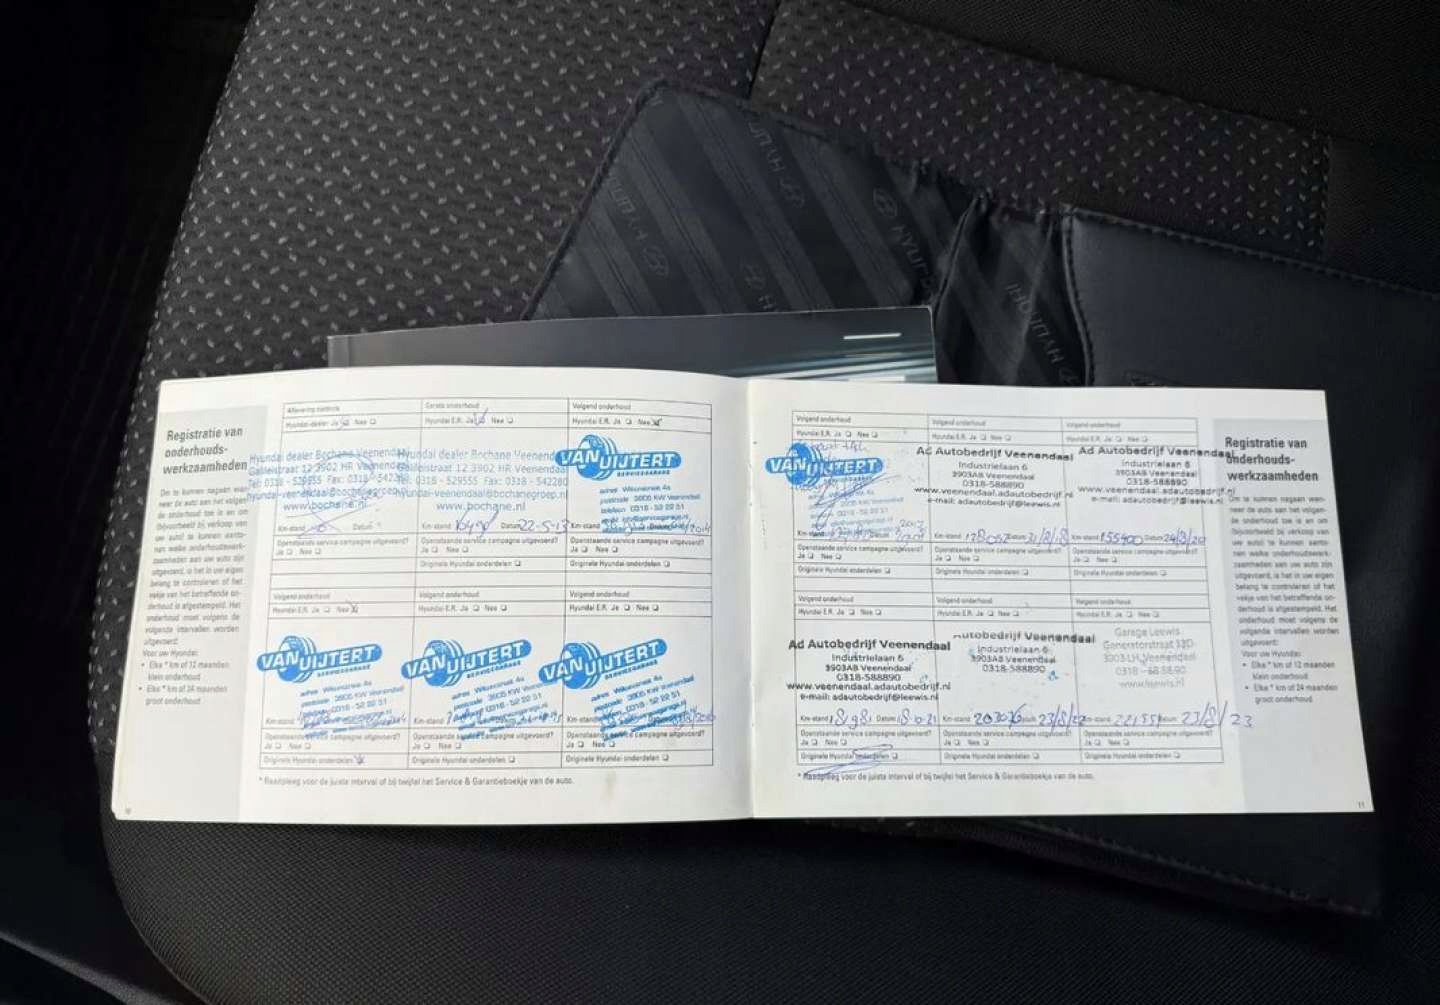 Registratie van
onderhouds-
werkzaamheden
Om te kunnen nagaan wan-
neer de auto aan het volgen-
de onderhoud toe is en om
(bijvoorbeeld bij verkoop van
uw auto) te kunnen aanto-
nen welke onderhoudswerk-
zaamheden aan uw auto zijn
uitgevoerd, is het in uw eigen
belang te controleren of het
vakje van het betreffende on-
derhoud is afgestempeld. Het
onderhoud moet volgens de
volgende intervallen worden
uitgevoerd:
Voor uw Hyundai:
• Elke * km of 12 maanden
klein onderhoud
• Elke * km of 24 maanden
groot onderhoud
10
Aflevering
Hyundai-dealer Ja Nee
Hyundai dealer Bochane Veenendaal
Galileistraat 12 3902 HR Veenendaal
Tel: 0318 - 529555 Fax: 0318 - 542280
hyundai-veenendaal@bochanegroep.nl
www.bochane.nl
Km-stand Datum
Openstaande service campagne uitgevoerd?
Ja Nee
Eerste onderhoud
Hyundai E.R. Ja Nee
Hyundai dealer Bochane Veenendaal
Galileistraat 12 3902 HR Veenendaal
Tel: 0318 - 529555 Fax: 0318 - 542280
hyundai-veenendaal@bochanegroep.nl
www.bochane.nl
Km-stand Datum 22-5-13
Openstaande service campagne uitgevoerd?
Ja Nee
Originele Hyundai onderdelen
Volgend onderhoud
Hyundai E.R. Ja Nee
VAN UIJTERT
SERVICEGARAGE
adres Wiltonstraat 4a
postcode 3905 KW Veenendaal
telefoon 0318 - 52 22 51
Km-stand 2014
Openstaande service campagne uitgevoerd?
Ja Nee
Originele Hyundai onderdelen
Volgend onderhoud
Hyundai E.R. Ja Nee
VAN UIJTERT
SERVICEGARAGE
adres Wiltonstraat 4a
postcode 3905 KW Veenendaal
telefoon 0318 - 52 22 51
Km-stand
Openstaande service campagne uitgevoerd?
Ja Nee
Originele Hyundai onderdelen
Volgend onderhoud
Hyundai E.R. Ja Nee
VAN UIJTERT
SERVICEGARAGE
adres Wiltonstraat 4a
3905 KW Veenendaal
0318 - 52 22 51
Km-stand
Openstaande service campagne uitgevoerd?
Ja Nee
Originele Hyundai onderdelen
Volgend onderhoud
Hyundai E.R. Ja Nee
VAN UIJTERT
SERVICEGARAGE
adres Wiltonstraat 4a
postcode 3905 KW Veenendaal
telefoon 0318 - 52 22 51
Km-stand 2016
Openstaande service campagne uitgevoerd?
Ja Nee
Originele Hyundai onderdelen
* Raadpleeg voor de juiste interval of bij twijfel het Service & Garantieboekje van de auto.
Volgend onderhoud
Hyundai E.R. Ja Nee
VAN UIJTERT
SERVICEGARAGE
Wiltonstraat 4a
3905 KW Veenendaal
0318 - 52 22 51
Km-stand 2017
Openstaande service campagne uitgevoerd?
Ja Nee
Originele Hyundai onderdelen
Volgend onderhoud
Hyundai E.R. Ja Nee
Ad Autobedrijf Veenendaal
Industrielaan 6
3903AB Veenendaal
0318-588890
www.veenendaal.adautobedrijf.nl
e-mail: adautobedrijf@leewis.nl
Km-stand 128052 Datum 21/8/18
Openstaande service campagne uitgevoerd?
Ja Nee
Originele Hyundai onderdelen
Volgend onderhoud
Hyundai E.R. Ja Nee
Ad Autobedrijf Veenendaal
Industrielaan 6
3903AB Veenendaal
0318-588890
www.veenendaal.adautobedrijf.nl
e-mail: adautobedrijf@leewis.nl
Km-stand 155400 Datum 24/8/20
Openstaande service campagne uitgevoerd?
Ja Nee
Originele Hyundai onderdelen
Volgend onderhoud
Hyundai E.R. Ja Nee
Ad Autobedrijf Veenendaal
Industrielaan 6
3903AB Veenendaal
0318-588890
www.veenendaal.adautobedrijf.nl
e-mail: adautobedrijf@leewis.nl
Km-stand Datum 18-10-21
Openstaande service campagne uitgevoerd?
Ja Nee
Originele Hyundai onderdelen
Volgend onderhoud
Hyundai E.R. Ja Nee
Autobedrijf Veenendaal
Industrielaan 6
3903AB Veenendaal
0318-588890
Km-stand Datum 23/8/22
Openstaande service campagne uitgevoerd?
Ja Nee
Originele Hyundai onderdelen
Volgend onderhoud
Hyundai E.R. Ja Nee
Garage Leewis
Generatorstraat 13D
3903 LH Veenendaal
0318 - 58 58 90
www.leewis.nl
Km-stand Datum 23/8/23
Openstaande service campagne uitgevoerd?
Ja Nee
Originele Hyundai onderdelen
* Raadpleeg voor de juiste interval of bij twijfel het Service & Garantieboekje van de auto.
Registratie van
onderhouds-
werkzaamheden
Om te kunnen nagaan wan-
neer de auto aan het volgen-
de onderhoud toe is en om
(bijvoorbeeld bij verkoop van
uw auto) te kunnen aanto-
nen welke onderhoudswerk-
zaamheden aan uw auto zijn
uitgevoerd, is het in uw eigen
belang te controleren of het
vakje van het betreffende on-
derhoud is afgestempeld. Het
onderhoud moet volgens de
volgende intervallen worden
uitgevoerd:
Voor uw Hyundai:
• Elke * km of 12 maanden
klein onderhoud
• Elke * km of 24 maanden
groot onderhoud
11
HYUNDAI